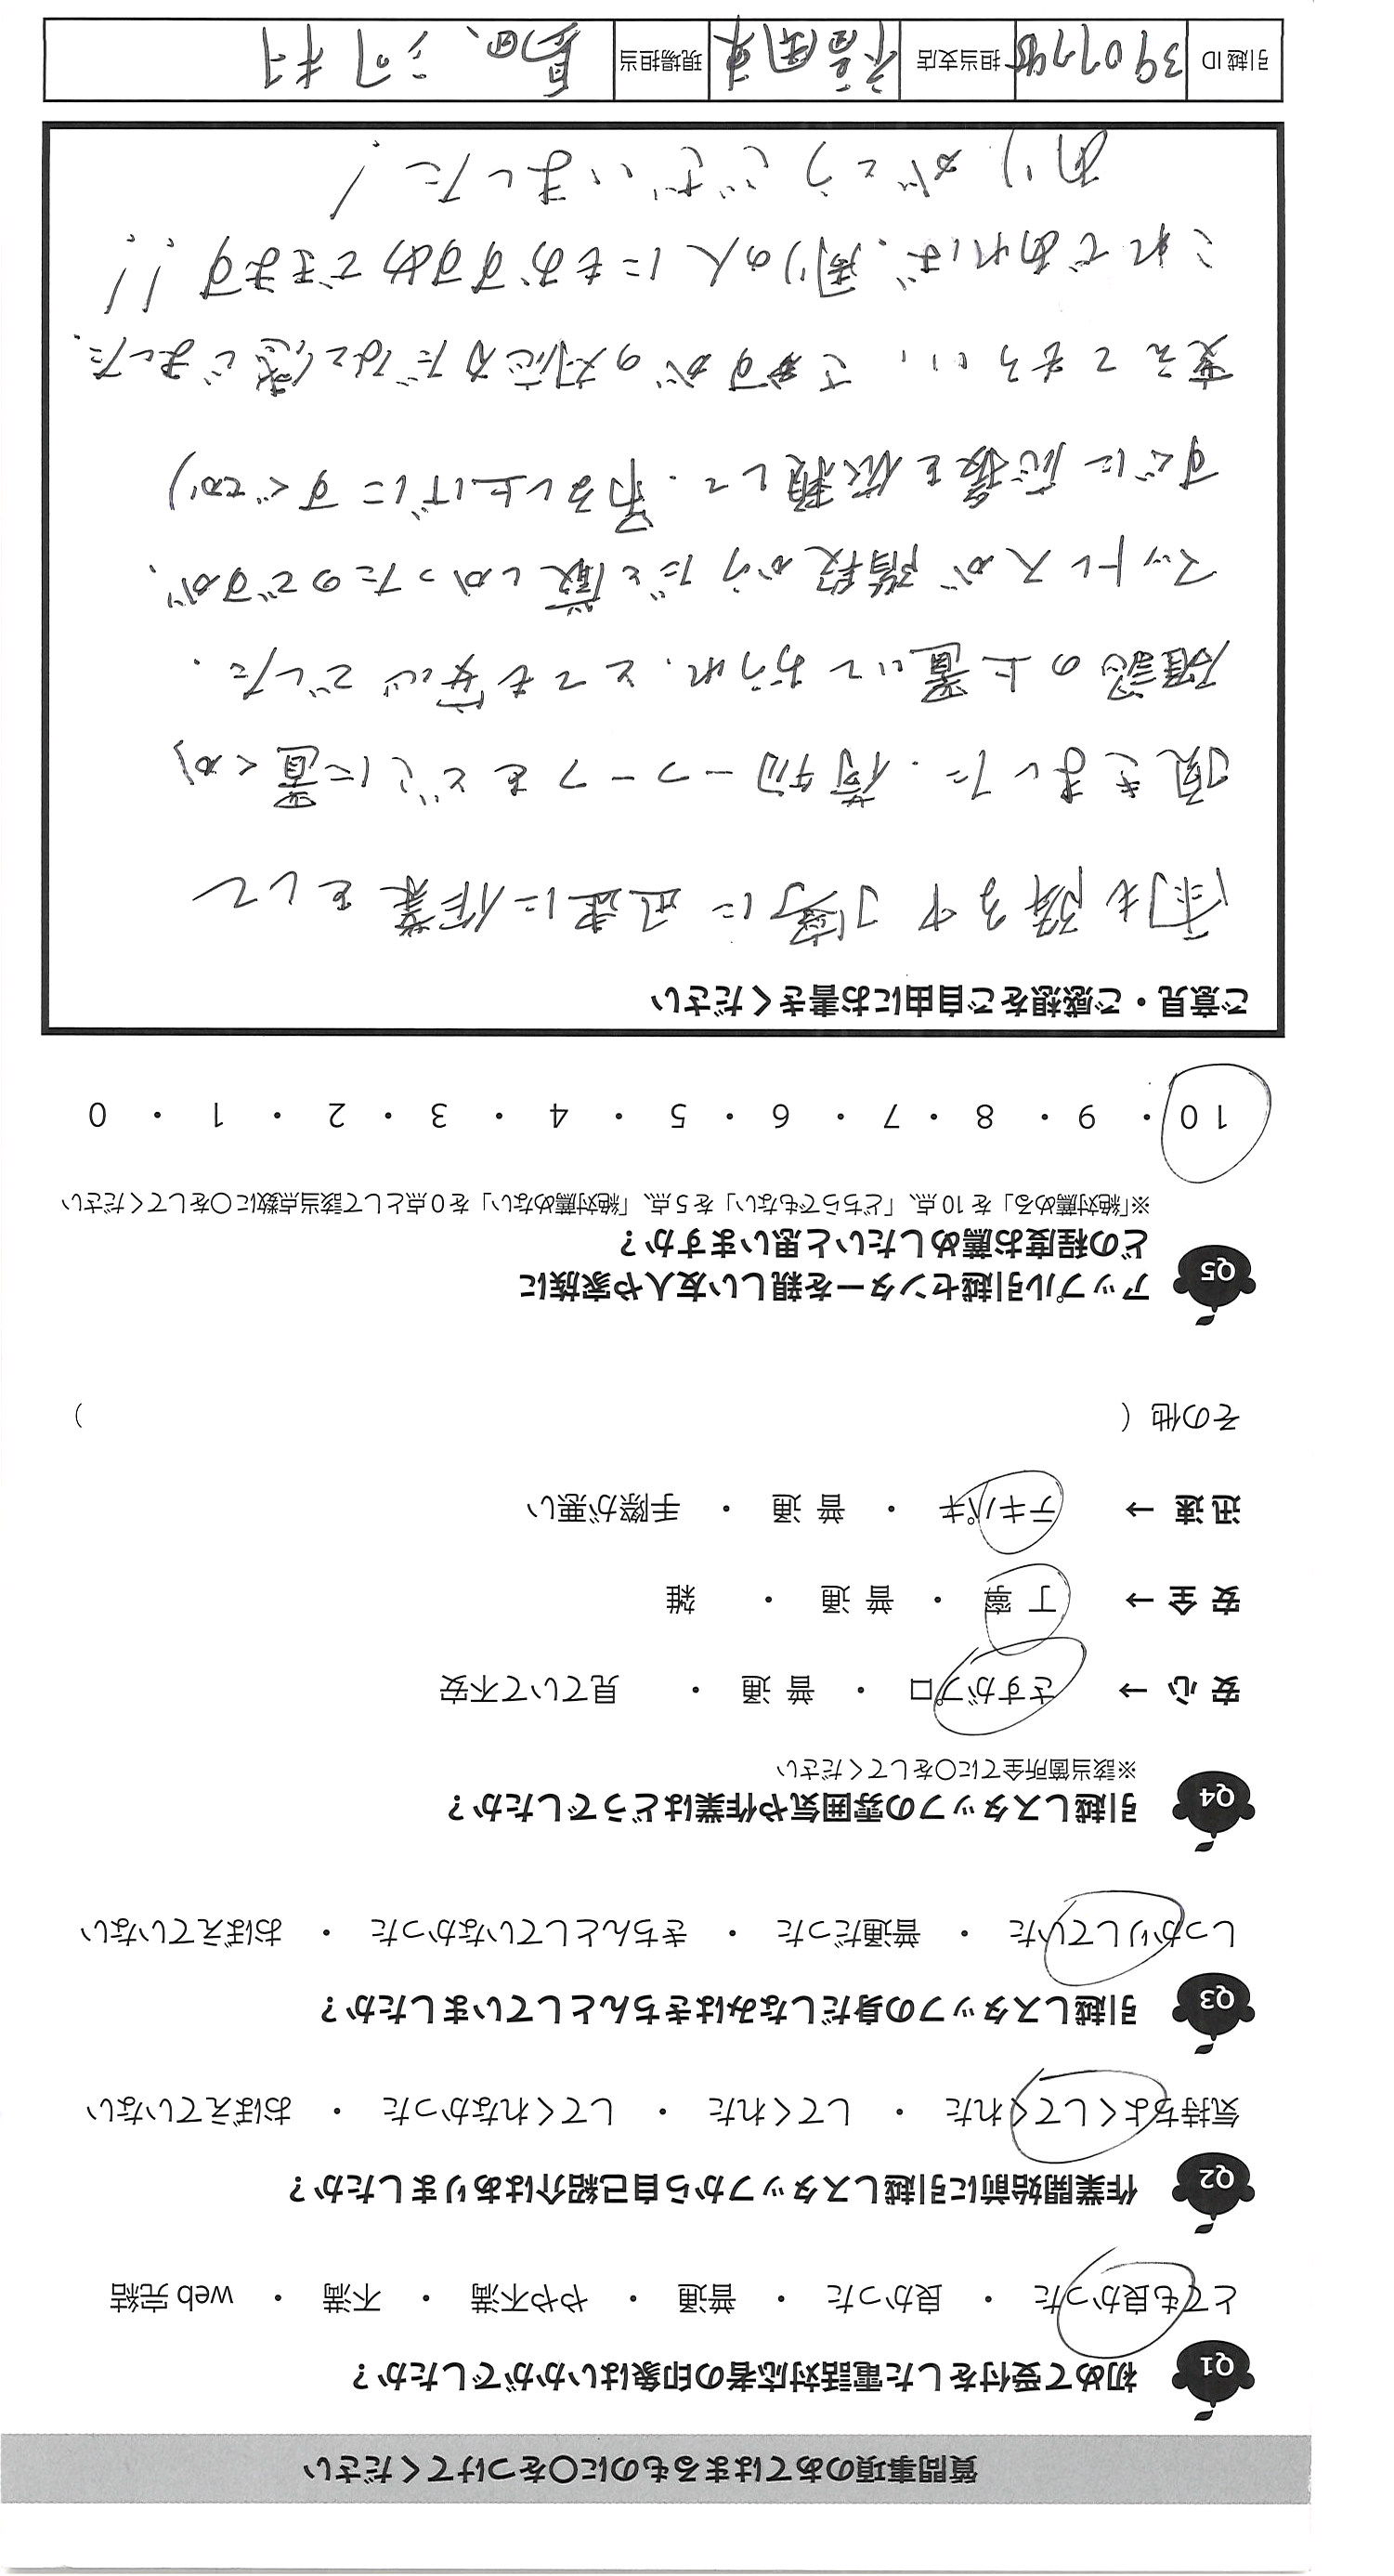 質問事項のあてはまるものに〇をつけてください
Q1 初めて受付をした電話対応者の印象はいかがでしたか？
とても良かった ・ 良かった ・ 普通 ・ やや不満 ・ 不満 ・ web 完結
Q2 作業開始前に引越しスタッフから自己紹介はありましたか？
気持ちよくしてくれた ・ してくれた ・ してくれなかった ・ おぼえていない
Q3 引越しスタッフの身だしなみはきちんとしていましたか？
しっかりしていた ・ 普通だった ・ きちんとしていなかった ・ おぼえていない
Q4 引越しスタッフの雰囲気や作業はどうでしたか？
※該当箇所全てに〇をしてください
安心 → さすがプロ ・ 普通 ・ 見ていて不安
安全 → 丁寧 ・ 普通 ・ 雑
迅速 → テキパキ ・ 普通 ・ 手際が悪い
その他（ ）
Q5 アップル引越センターを親しい友人や家族に
どの程度お薦めしたいと思いますか？
※「絶対薦める」を10点、「どちらでもない」を5点、「絶対薦めない」を0点として該当点数に〇をしてください
10 ・ 9 ・ 8 ・ 7 ・ 6 ・ 5 ・ 4 ・ 3 ・ 2 ・ 1 ・ 0
ご意見・ご感想をご自由にお書きください
雨も降る中丁寧に迅速に作業をして
頂きました．荷物一つ一つをどこに置くか
確認の上置いておられ、とても安心でした．
マットレスが階段からだと厳しかったのですが、
すぐに応援を依頼して、吊るし上げにすぐ切り
変えてもらい、さすがの対応力だなと感じました．
これであれば、周りの人にもおすすめできます!!
ありがとうございました！
引越ID 担当支店 福岡東 現場担当